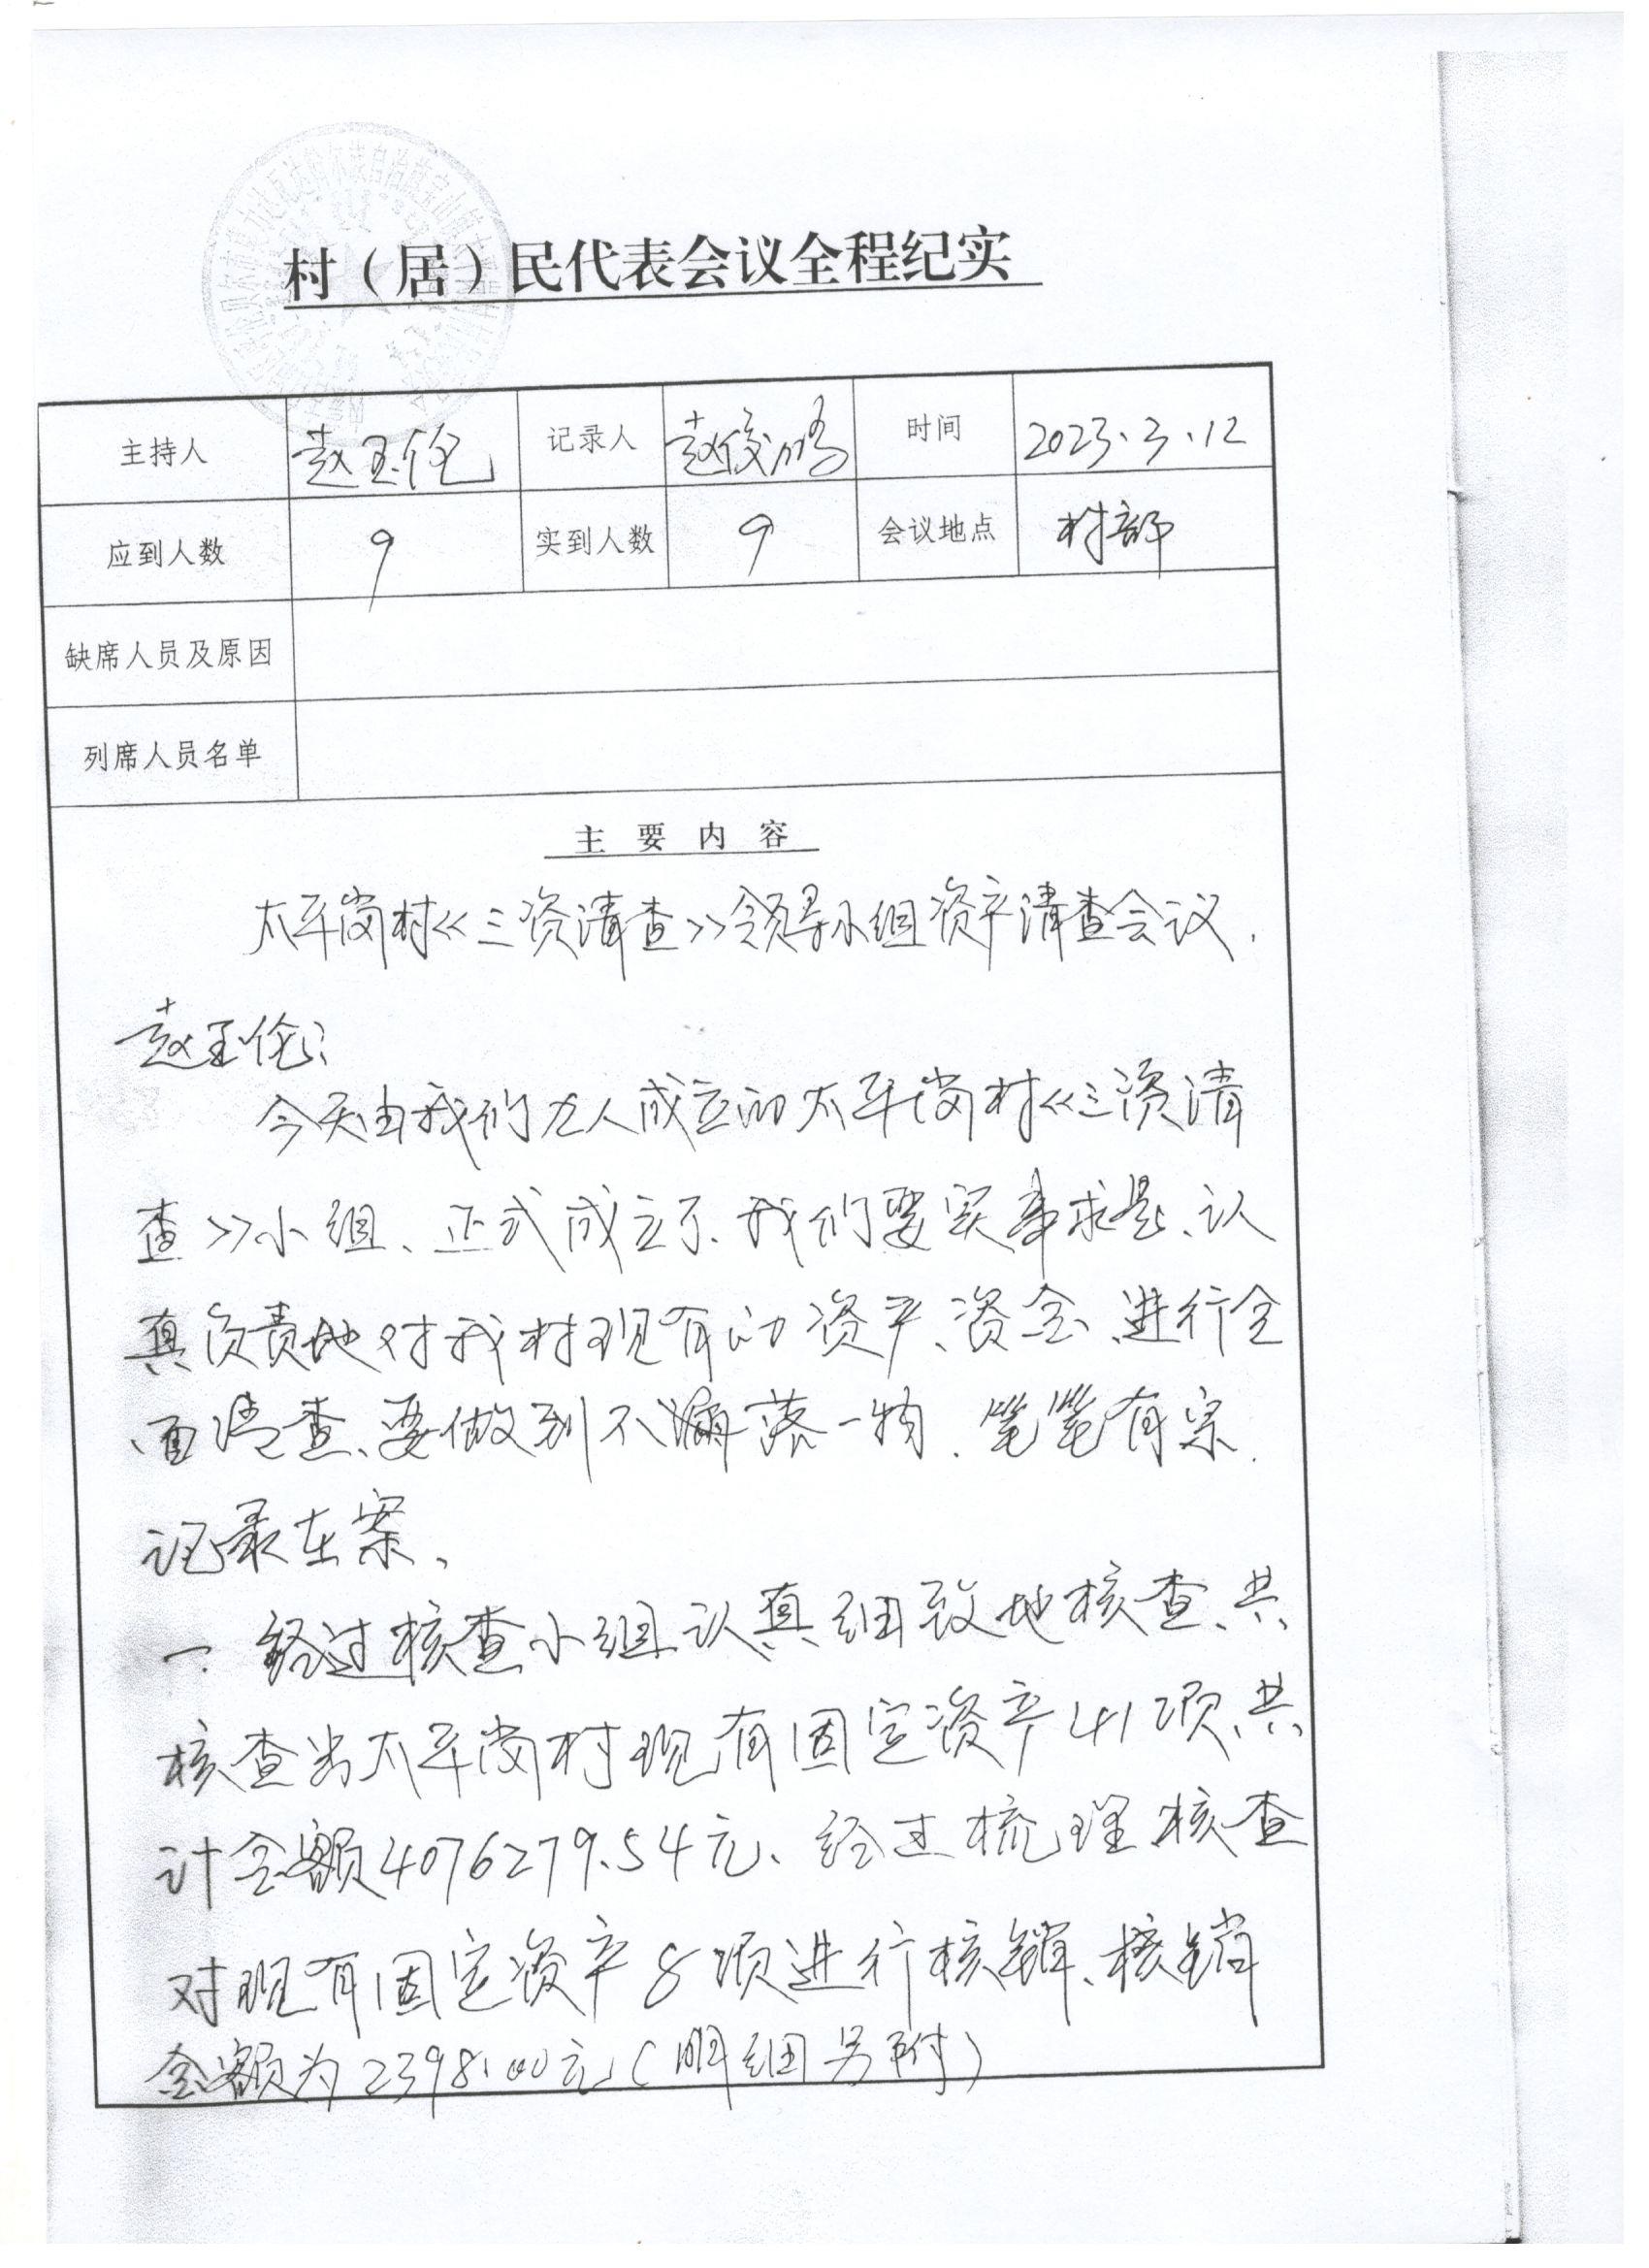 村（居）民代表会议全程纪实
主持人 赵玉伦 记录人 赵俊鹏 时间 2023.3.12
应到人数 9 实到人数 9 会议地点 村部
缺席人员及原因
列席人员名单
主要内容
太平岗村《三资清查》领导小组资产清查会议.
赵玉伦:
今天由我们九人成立的太平岗村《三资清
查》小组、正式成立了、我们要实事求是、认
真负责地对我村现有的资产、资金、进行全
面清查、要做到不漏落一物、笔笔有宗.
记录在案、
一、经过核查小组认真细致地核查、共
核查出太平岗村现有固定资产41项、共
计金额4076279.54元、经过梳理核查
对现有固定资产8项进行核销、核销
金额为2398.00元(明细另附)